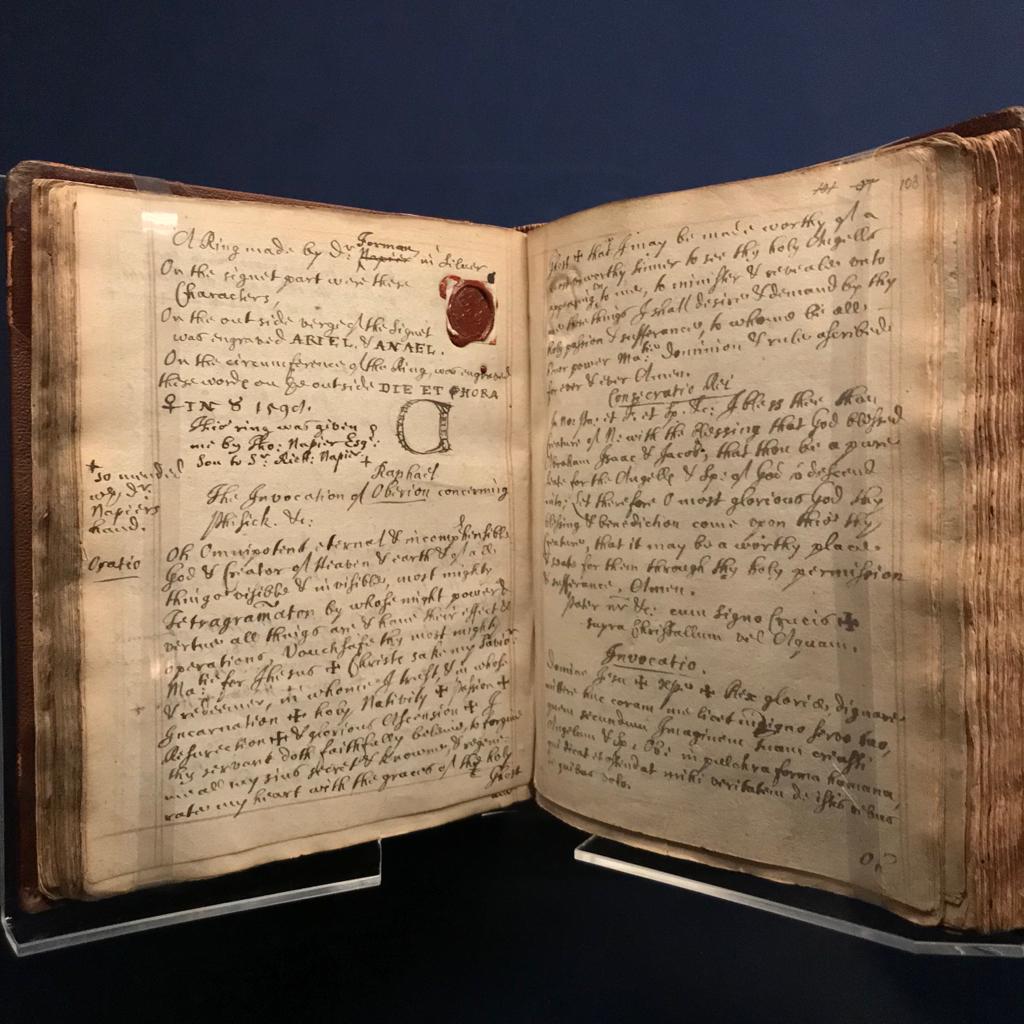 A Ring made by Dr Forman Napier in silver
On the signet part were these
Characters,
On the outside verge of the Signet
was engraved ARIEL. & ANAEL.
On the circumference of the Ring, was engraved
these words on ye outside DIE ET HORA
♀ IN 8 1598.
This ring was given
me by Tho: Napier Esqr:
Son to Sr. Rich: Napier
+ so mended
wth Dr.
Napiers
hand.
Raphael
The Invocation of Oberion concerning
Phisick. &c:
Oratio
Oh Omnipotent, eternal & incomprehensible
God & Creator of Heaven & earth & of all
things visible & invisible, most mighty
Tetragramaton by whose might power &
vertue all things are & have their effect &
operations, Vouchsafe thy most mighty
Matie: for Jhesus ✠ Christe sake my Savior
& redeemer, in whome I trust, & in whose
Incarnation ✠ holy Nativity ✠ passion ✠
Resurection ✠ & glorious Ascension ✠ I
thy servant doth faithfully believe, to forgive
me all my sins secret & knowne, & regene-
rate my heart with the graces of thy holy
Ghost
108
ghost ✠ that I may be made worthy of a
most unworthy sinner to see thy holy Angells
appearing to me, to minister & revealed unto
me those things I shall desire & demand by thy
holy passion & sufferance, to whome be all
power Matie: dominion & rule ascribed
for ever & ever Amen.
Consecratio Dei
In Nne. Pa: et F: et Sp. Sc: I bless thee thou
creature of N: with the blessing that God blessed
Abraham Isaac & Jacob, that thou be a pure
seate for the Angells & Sp: of God to descend
into; Let therefore O most glorious God thy
blessing & benediction come upon this thy
creature, that it may be a worthy place
& seate for them through thy holy permission
& sufferance, Amen.
Pater nr &c: cum signo Crucis ✠
supra Christallum vel Aquam.
Invocatio.
Domine Jesu ✠ Xpe ✠ Rex gloriæ, dignare
mittere huc coram me licet indigno servo tuo,
quem secundum Imaginem tuam creasti
Angelum & Sp: Ob: in pulchra forma humana,
qui dicat et ostendat mihi veritatem de istis rebus
in quibus volo.